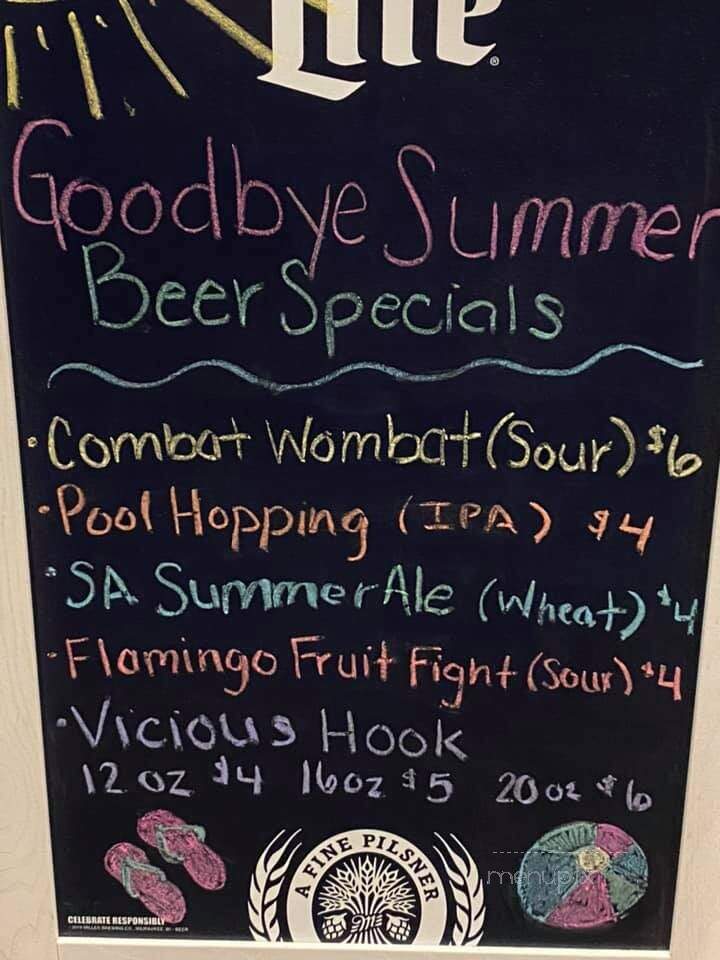 Lite®
Goodbye Summer
Beer Specials
• Combat Wombat (Sour) $6
• Pool Hopping (IPA) $4
• SA Summer Ale (Wheat) $4
• Flamingo Fruit Fight (Sour) $4
• Vicious Hook
12 oz $4 16oz $5 20 oz $6
A FINE PILSNER
menupix
CELEBRATE RESPONSIBLY
MILLER BREWING CO., MILWAUKEE, WI • BEER